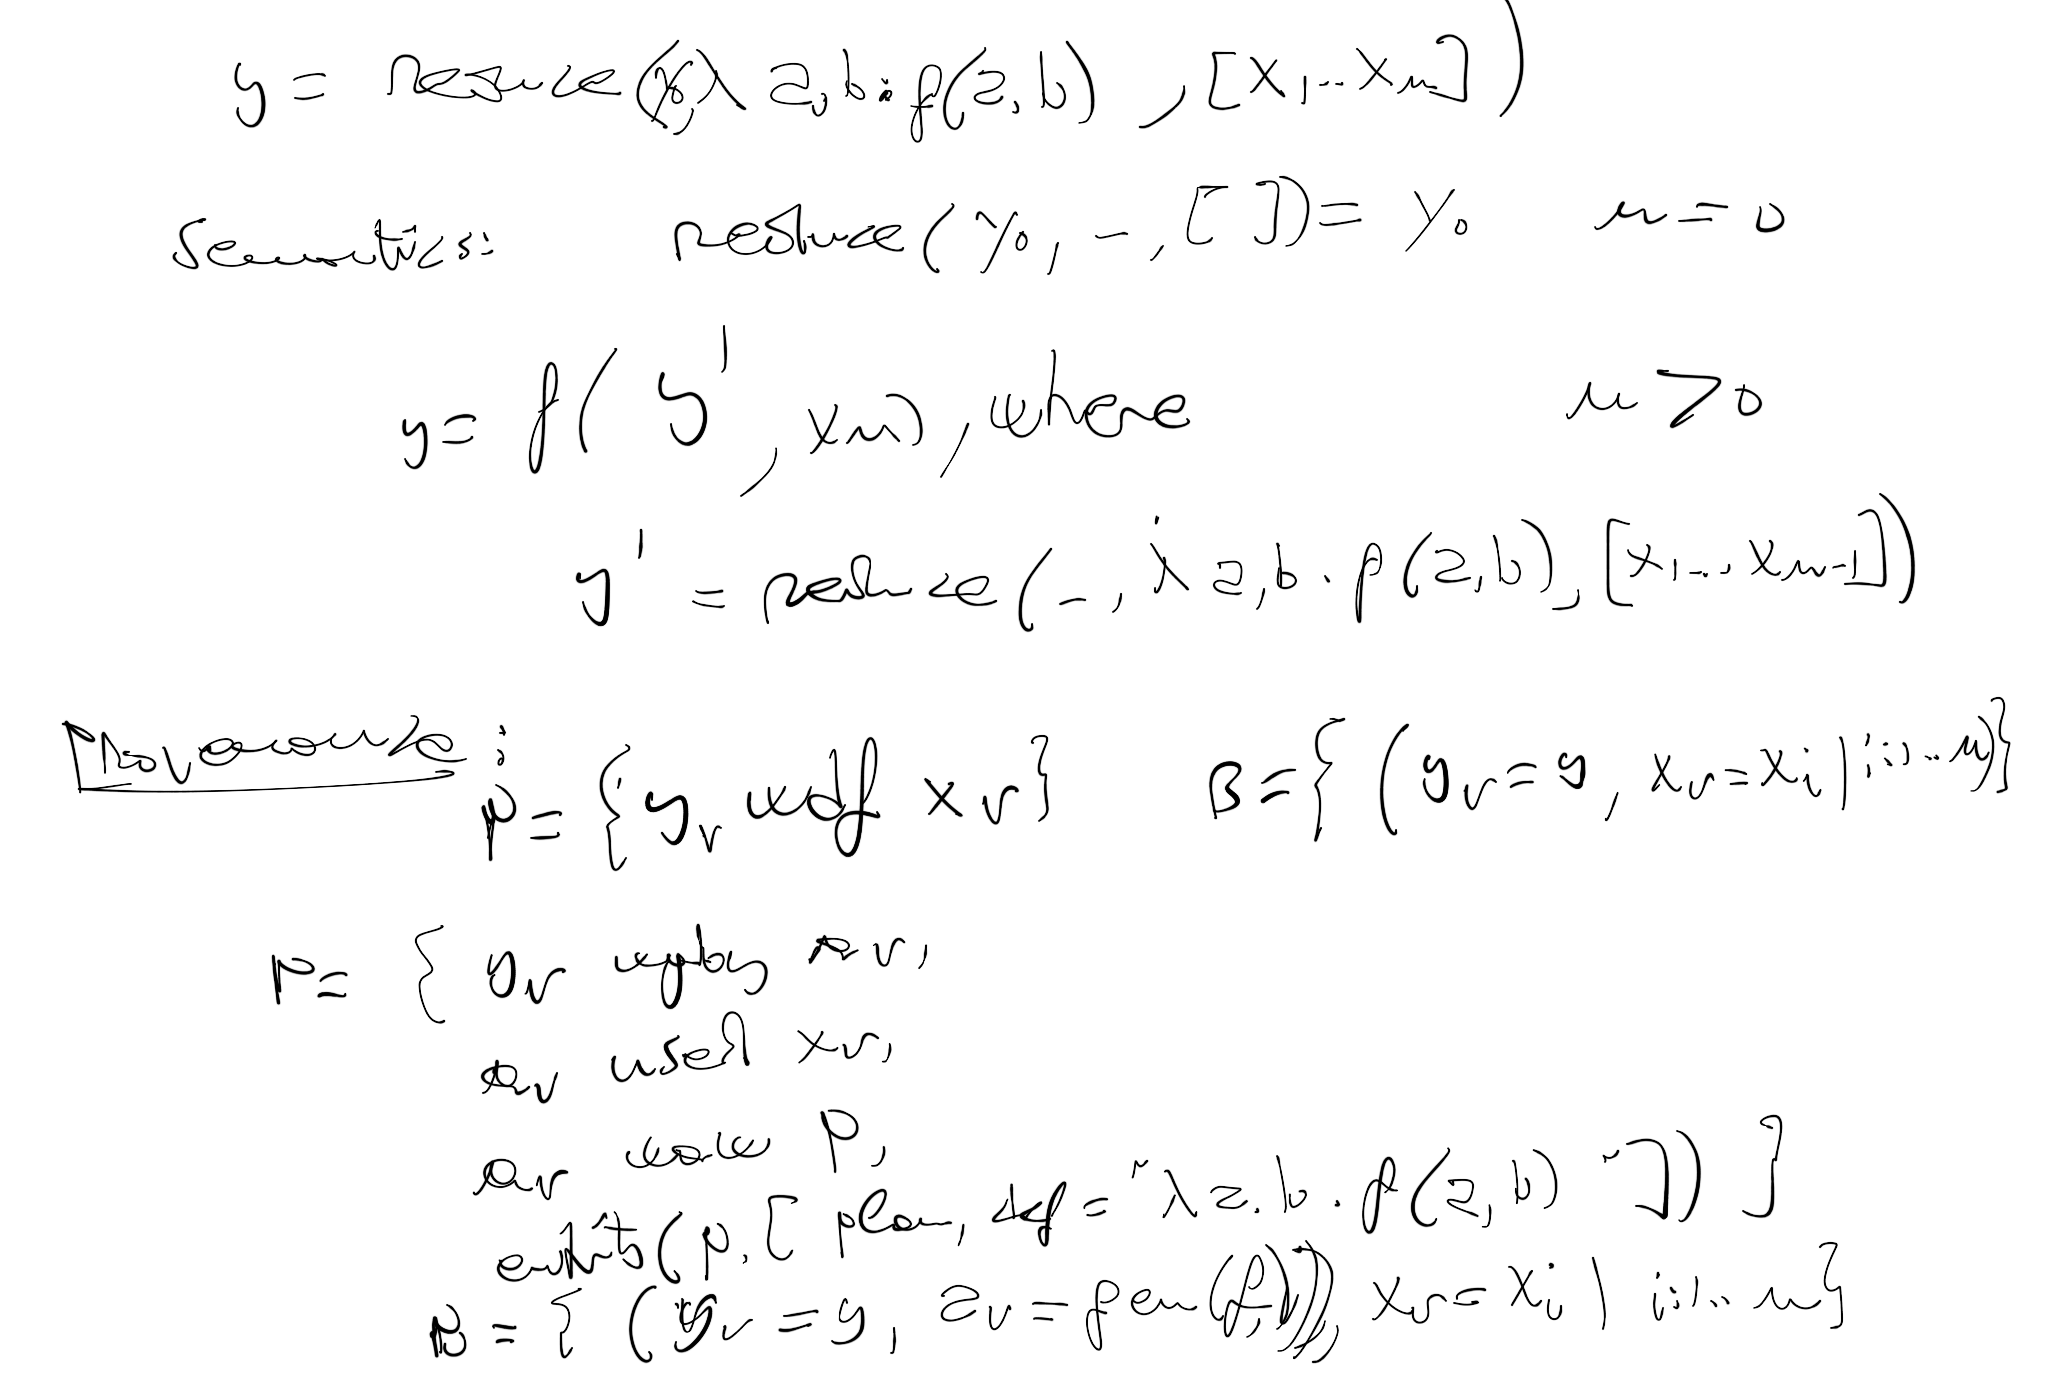 y = reduce(y₀, λ a,b. f(a,b), [x₁..xₙ])
Semantics: reduce(y₀, -, [ ]) = y₀ n=0
y = f(y', xₙ), where n>0
y' = reduce(-, λ a,b. f(a,b), [x₁... xₙ₋₁])
Provenance: P = {yᵥ wdf xᵥ} B = { (yᵥ=y, xᵥ=xᵢ | i:1..n)}
P = { yᵥ wgby aᵥ,
aᵥ used xᵥ,
aᵥ waw P,
entity(p, [plan, def = "λ a,b. f(a,b)"]) }
B = { (yᵥ = y, aᵥ = gen(f, xᵥ = xᵢ | i:1.. n}